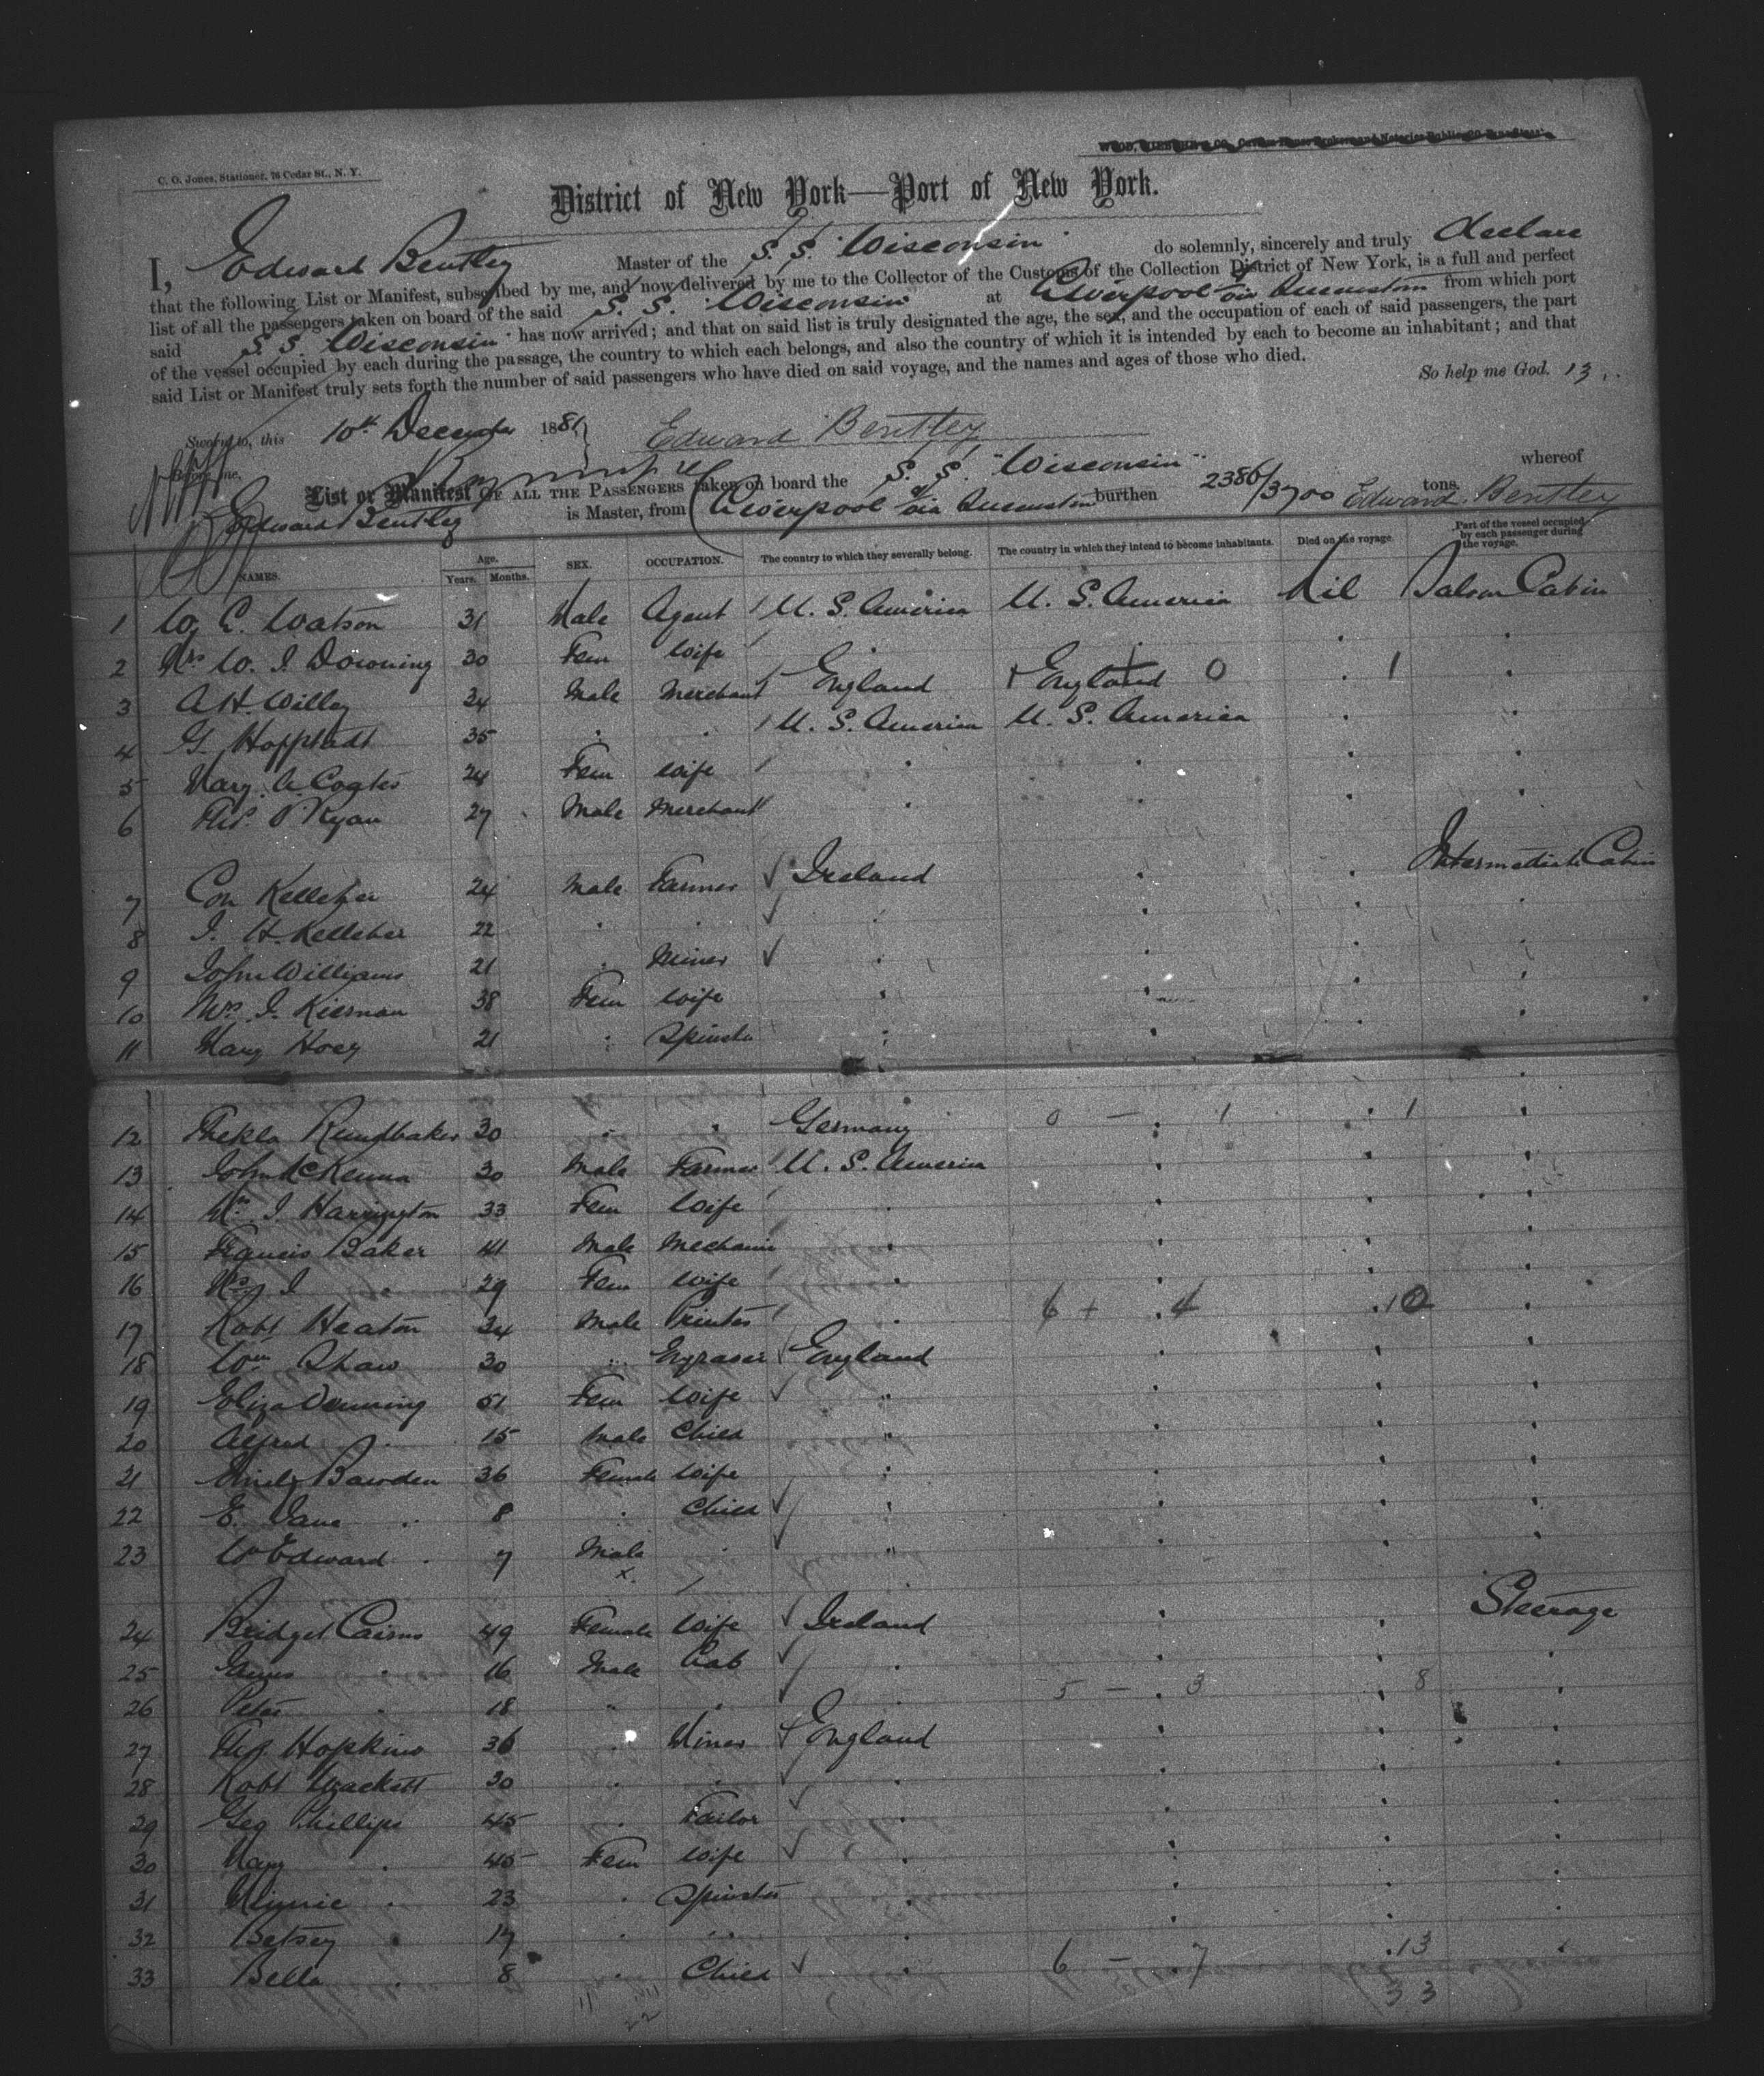 C. O. Jones, Stationer, 76 Cedar St., N. Y.
District of New York—Port of New York.
I, Edward Bentley Master of the S. S. "Wisconsin" do solemnly, sincerely and truly declare
that the following List or Manifest, subscribed by me, and now delivered by me to the Collector of the Customs of the Collection District of New York, is a full and perfect
list of all the passengers taken on board of the said S. S. "Wisconsin" at Liverpool via Queenstown from which port
said S. S. Wisconsin" has now arrived; and that on said list is truly designated the age, the sex, and the occupation of each of said passengers, the part
of the vessel occupied by each during the passage, the country to which each belongs, and also the country of which it is intended by each to become an inhabitant; and that
said List or Manifest truly sets forth the number of said passengers who have died on said voyage, and the names and ages of those who died.
So help me God. 13
Sworn to, this 10th December 1881 Edward Bentley
Before me,
List or Manifest OF ALL THE PASSENGERS taken on board the S. S. "Wisconsin" whereof
Edward Bentley is Master, from Liverpool via Queenstown burthen 2386/3700 tons. Edward Bentley
NAMES. Age. Years. Months. SEX. OCCUPATION. The country to which they severally belong. The country in which they intend to become inhabitants. Died on the voyage. Part of the vessel occupied by each passenger during the voyage.
1 W. E. Watson 31 Male Agent U. S. America U. S. America Nil Saloon Cabin
2 Mrs W. J. Downing 30 Fem Wife "
3 A. H. Willey 24 Male Merchant England England 0 1
4 G. Hoppstadt 35 " " U. S. America U. S. America
5 Mary A. Coates 24 Fem Wife " "
6 Ths. P. Ryan 27 Male Merchant " "
7 Con Kelleher 24 Male Farmer Ireland " Intermediate Cabin
8 J. H. Kelleher 22 " " " "
9 John Williams 21 " Miner " "
10 Mrs. J. Kiernan 38 Fem Wife " "
11 Mary Hoey 21 " Spinster " "
12 Thekla 30 " " Germany 0 — 1 1
13 John McKenna 30 Male Farmer U. S. America "
14 Mrs J. Harrington 33 Fem Wife " "
15 Francis Baker 41 Male Mechanic " "
16 Mrs J. " 29 Fem Wife " "
17 Robt Heaton 34 Male Printer " 6 + 4 10
18 Wm Shaw 30 " Engraver England "
19 Eliza Denning 51 Fem Wife " "
20 Alfred " 15 Male Child " "
21 Emily Bawden 36 Female Wife " "
22 E. Jane " 8 " Child " "
23 W Edward " 7 Male " "
24 Bridget Cairns 49 Female Wife Ireland " Steerage
25 James " 16 Male Lab " "
26 Peter " 18 " " " 5 — 3 8
27 Ths. Hopkins 36 " Miner England "
28 Robt 30 " " " "
29 Geo Phillips 45 " Tailor " "
30 Mary " 45 Fem Wife " "
31 Minnie " 23 " Spinster " "
32 Betsey " 17 " " " "
33 Bella " 8 " Child " 6 — 7 13
33
11
22